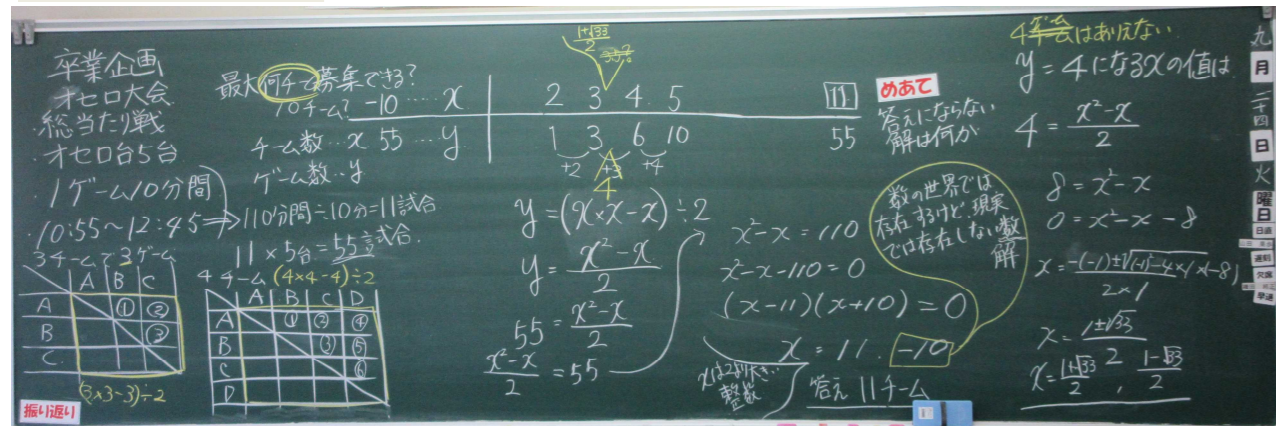 卒業企画
オセロ大会
総当たり戦
オセロ台5台
1ゲーム10分間
10:55~12:45⇒110分間÷10分=11試合
11×5台=55試合
3チームで3ゲーム
A B C
A ① ②
B ③
C
(3×3-3)÷2
振り返り
最大何チーム募集できる?
10チーム?
チーム数‥x
ゲーム数‥y
4チーム (4×4-4)÷2
A B C D
A ① ② ④
B ③ ⑤
C ⑥
D
1+√33
2
-10 …… x 2 3 4 5 11
55 … y 1 3 6 10 55
+2 +3 +4
4
y=(x×x-x)÷2
y=x²-x
2
55=x²-x
2
x²-x
2 =55
x²-x=110
x²-x-110=0
(x-11)(x+10)=0
x=11. -10
xは2より大きい
整数
答え 11チーム
めあて
答えにならない
解は何か
数の世界では
存在するけど、現実
では存在しない数
解
4ゲームはありえない
y=4になるxの値は
4=x²-x
2
8=x²-x
0=x²-x-8
x=-(-1)±√(-1)²-4×1×(-8)
2×1
x=1±√33
2
x=1+√33
2 , 1-√33
2
九
月
二十四
日
火
曜日
日直
遅刻
欠席
早退